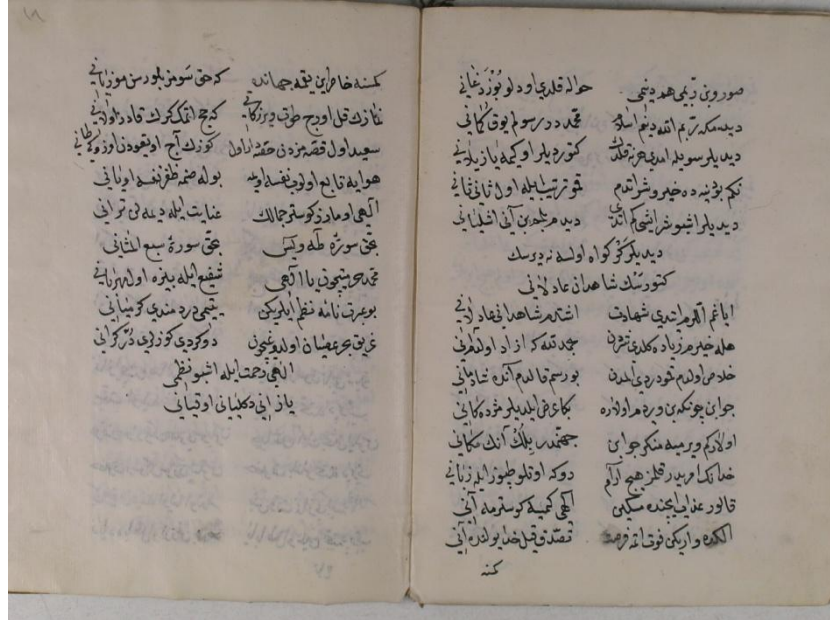 صوروبن ربمی هم دینمی حواله قلدی اودلو بوزدغانی
دیدم که ربم الله دینم اسلام محمددر رسولم یوق کمانی
دیدیلر سویله امدی نه قلدك کتوردیلر اوکمه یازیلانی
نکم بو دنیه ده خیر و شر اتدم قمو ترتیب ایله اول ثانی ثانی
دیدیلر اشبو شر ایشی کم اتدی دیدم بلمزین آنی اشلیانی
دیدیلر کر کواه اولسه نه دیرسك
کتورتك شاهدان عادلانی
ایاغم اللرم اتدی شهادت اشتدم شاهدانی عادلانی
هله خیرم زیاده کلدی شردن که ازاد اولدم آنی
خلاص اولدم قمو دردی المدن بو رسم قالدم آنده شادمانی
جوابن چونکه بن ویردم اولاره بکا عرض ایلدیلر مژده کانی
اولارکم ویرمیه منکر جوابن جهنمدر بیلك آنك مکانی
خدانك امریدر قلمز هیچ آرام دوکه اوتلو طپوز ایله زبانی
قالور عذاب ایچنده مسکین الهی کمسیه کوسترمه آنی
الکده واریکن قوت فرصت تصدق قیل خدا یولنده آنی
کمنه
کمسنه خاطرین یقمه جهانده که حق سومز بلورسن موذیانی
نمازك قیل اورج طوت ویر زکاتی که حج اتمك کرك قادر اولانی
سعید اول قصه مزدن حصه کوزك آچ اویقودن
هوایه تابع اولوب نفسه اویمه بوله صنمه ظفر نفسه اویانی
الهی اومارز کوستر جمالك عنایت ایله دیمه لن ترانی
بحق سورۀ طه و یس بحق سورۀ سبع المثانی
محمد حرمتیچون یا الهی شفیع ایله بیزه اول
بو عبرت نامه نظم ایلرکن یتیمی دردمندی کورمیانی
غریق بحر عصیان اولدوغیچون دوکردی کوزلری در کرانی
الهی رحمت ایله اشبو نظمی
یازانی دکلیانی اوقیانی